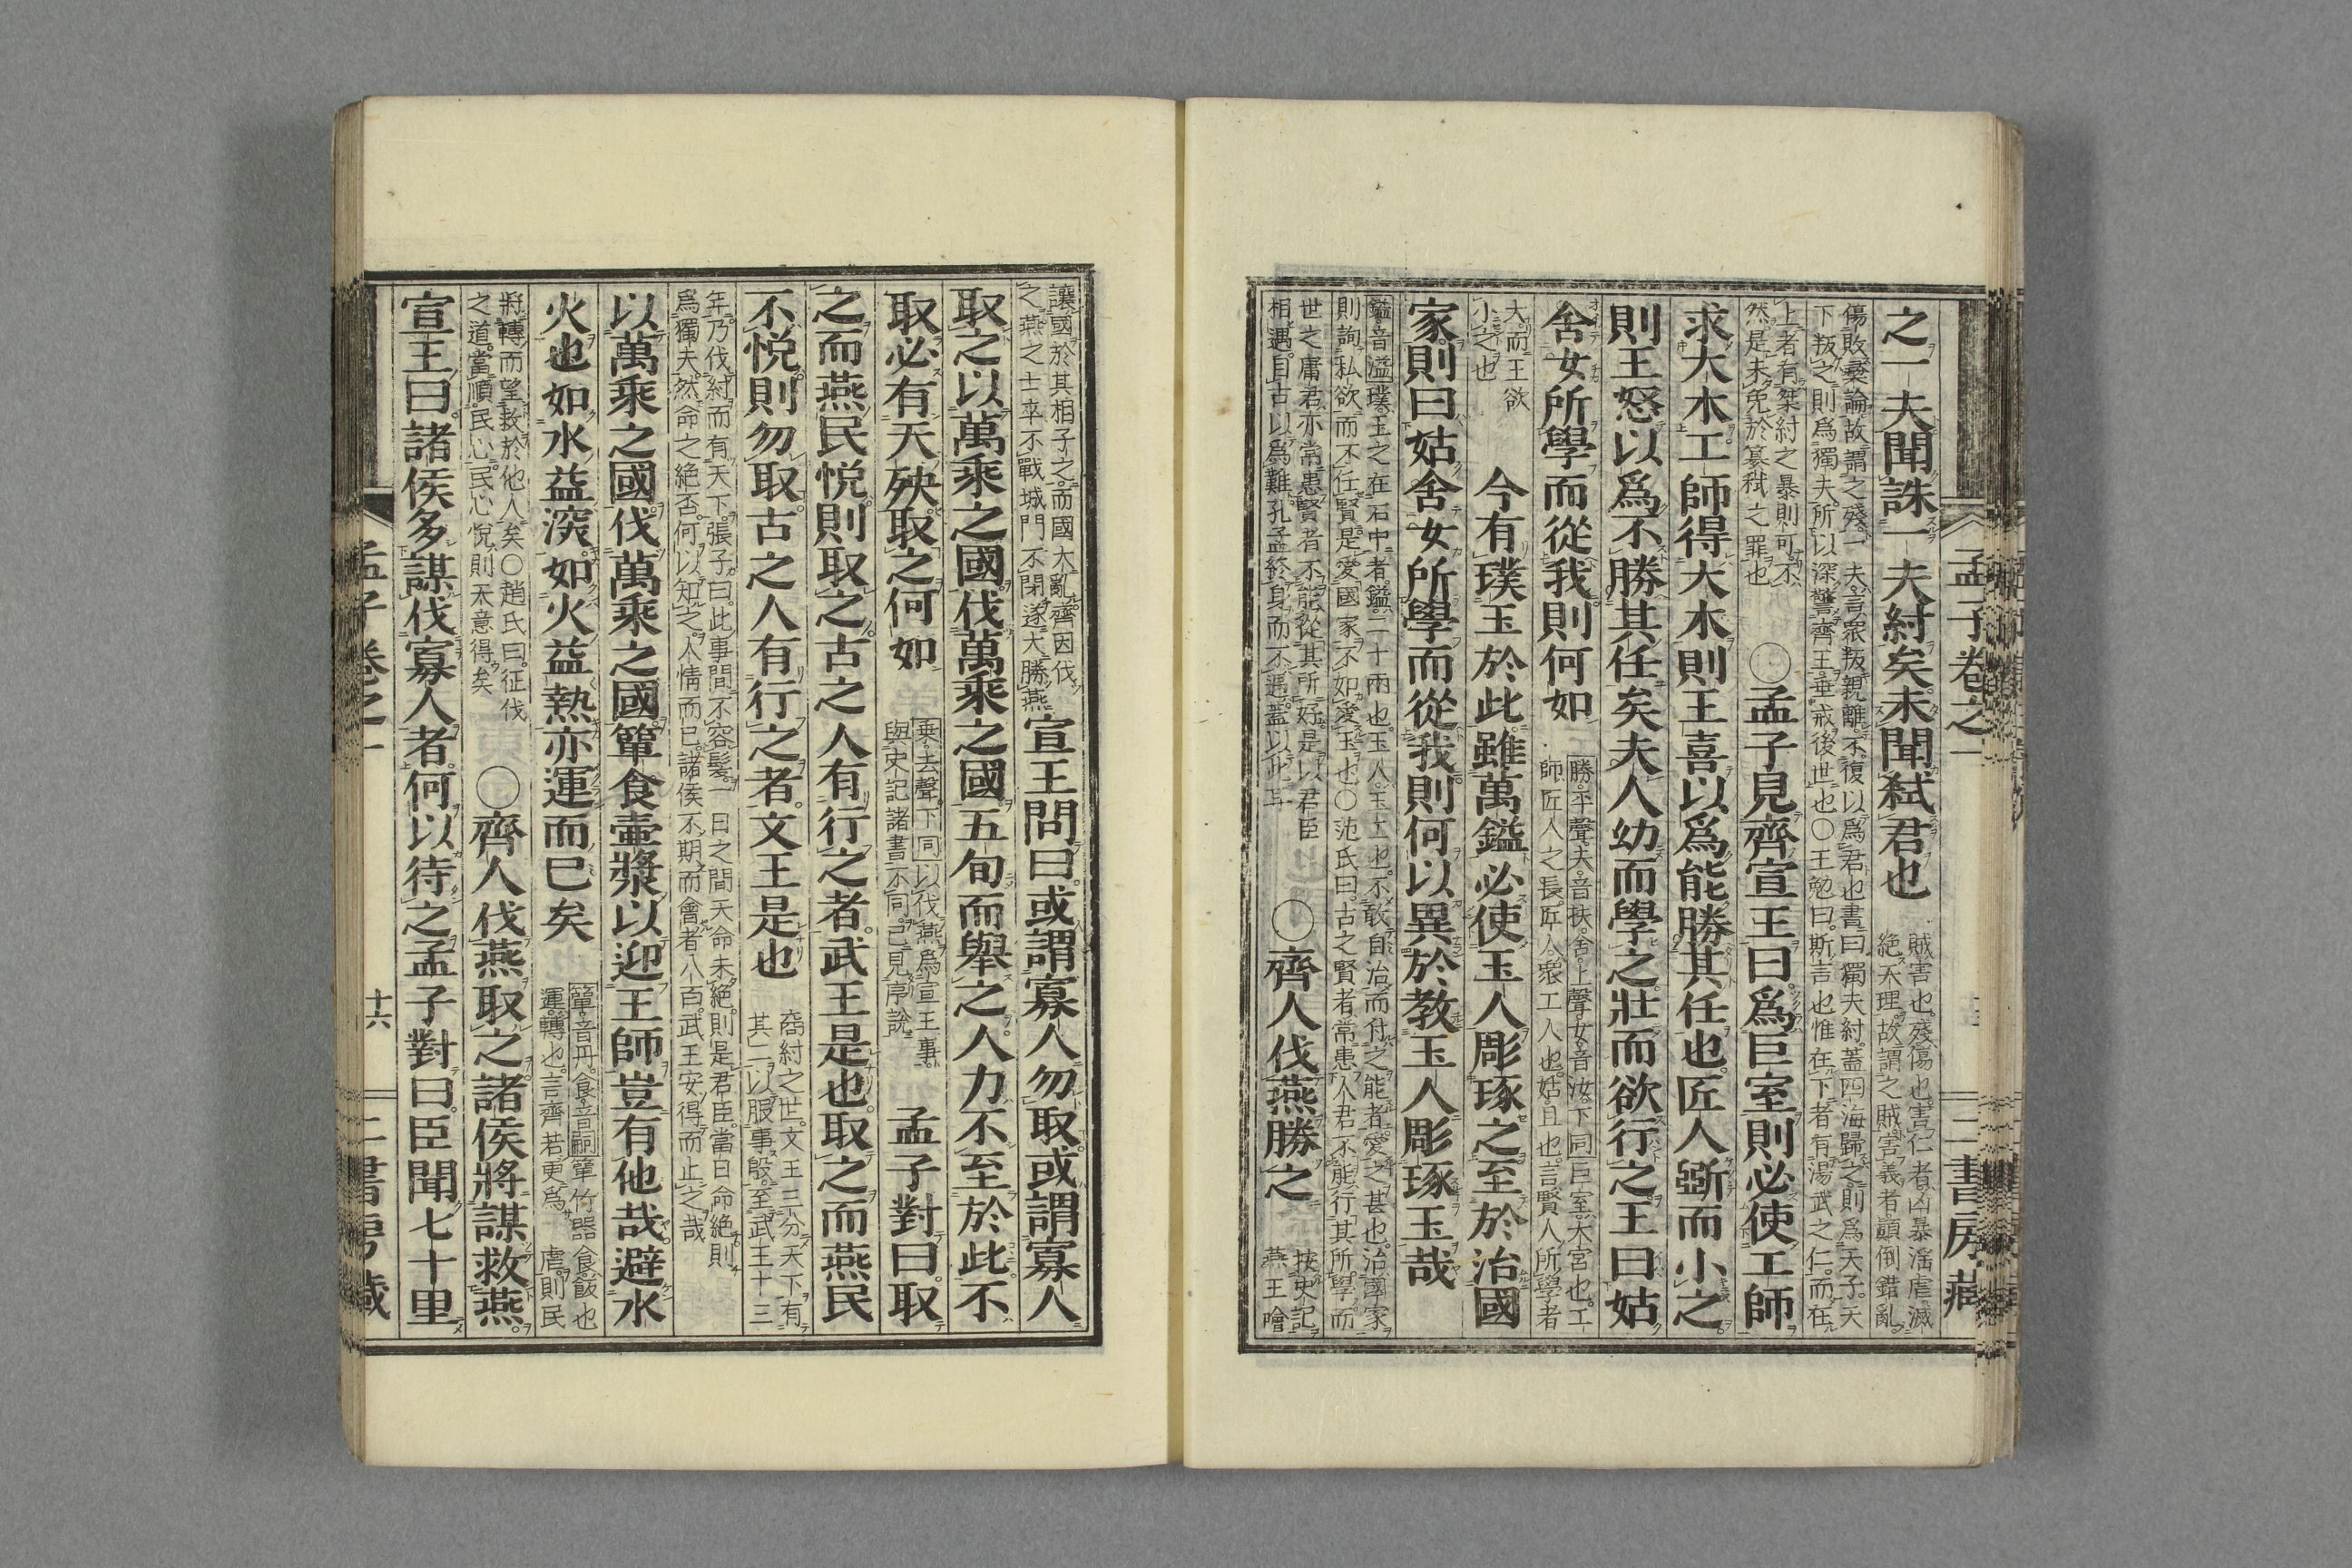 孟子卷之一　二書房藏
之一夫聞誅一夫紂矣未聞弑君也
賊害也殘傷也害仁者凶暴淫虐滅
絶天理故謂之賊害義者顛倒錯亂
傷敗彝論故謂之殘一夫言衆叛親離不復以爲君也書曰獨夫紂蓋四海歸之則爲天子天
下叛之則爲獨夫所以深警齊王垂戒後世也○王勉曰斯言也惟在下者有湯武之仁而在
上者有桀紂之暴則可不
然是未免於簒弑之罪也
○孟子見齊宣王曰爲巨室則必使工師
求大木工師得大木則王喜以爲能勝其任也匠人斲而小之
則王怒以爲不勝其任矣夫人幼而學之壯而欲行之王曰姑
舍女所學而從我則何如
勝平聲夫音扶舍上聲女音汝下同巨室大宮也工
師匠人之長匠人衆工人也姑且也言賢人所學者
大而王欲
小之也
今有璞玉於此雖萬鎰必使玉人彫琢之至於治國
家則曰姑舍女所學而從我則何以異於教玉人彫琢玉哉
鎰音溢璞玉之在石中者鎰二十兩也玉人玉工也不敢自治而付之能者愛之甚也治國家
則詢私欲而不任賢是愛國家不如愛玉也○范氏曰古之賢者常患人君不能行其所學而
世之庸君亦常患賢者不能從其所好是以君臣
相遇自古以爲難孔孟終身而不遇蓋以此耳
○齊人伐燕勝之
按史記
燕王噲
讓國於其相子之而國大亂齊因伐
之燕之士卒不戰城門不閉遂大勝燕
宣王問曰或謂寡人勿取或謂寡人
取之以萬乘之國伐萬乘之國五旬而舉之人力不至於此不
取必有天殃取之何如
乘去聲下同以伐燕爲宣王事
與史記諸書不同已見序說
孟子對曰取
之而燕民悅則取之古之人有行之者武王是也取之而燕民
不悅則勿取古之人有行之者文王是也
商紂之世文王三分天下有
其二以服事殷至武王十三
年乃伐紂而有天下張子曰此事間不容髮一日之間天命未絶則是君臣當日命絶則
爲獨夫然命之絶否何以知之人情而已諸侯不期而會者八百武王安得而止之哉
以萬乘之國伐萬乘之國簞食壷漿以迎王師豈有他哉避水
火也如水益深如火益熱亦運而已矣
簞音丹食音嗣簞竹器食飯也
運轉也言齊若更爲虐則民
將轉而望救於他人矣○趙氏曰征伐
之道當順民心民心悅則天意得矣
○齊人伐燕取之諸侯將謀救燕
宣王曰諸侯多謀伐寡人者何以待之孟子對曰臣聞七十里
孟子卷之一　十六　二書房藏